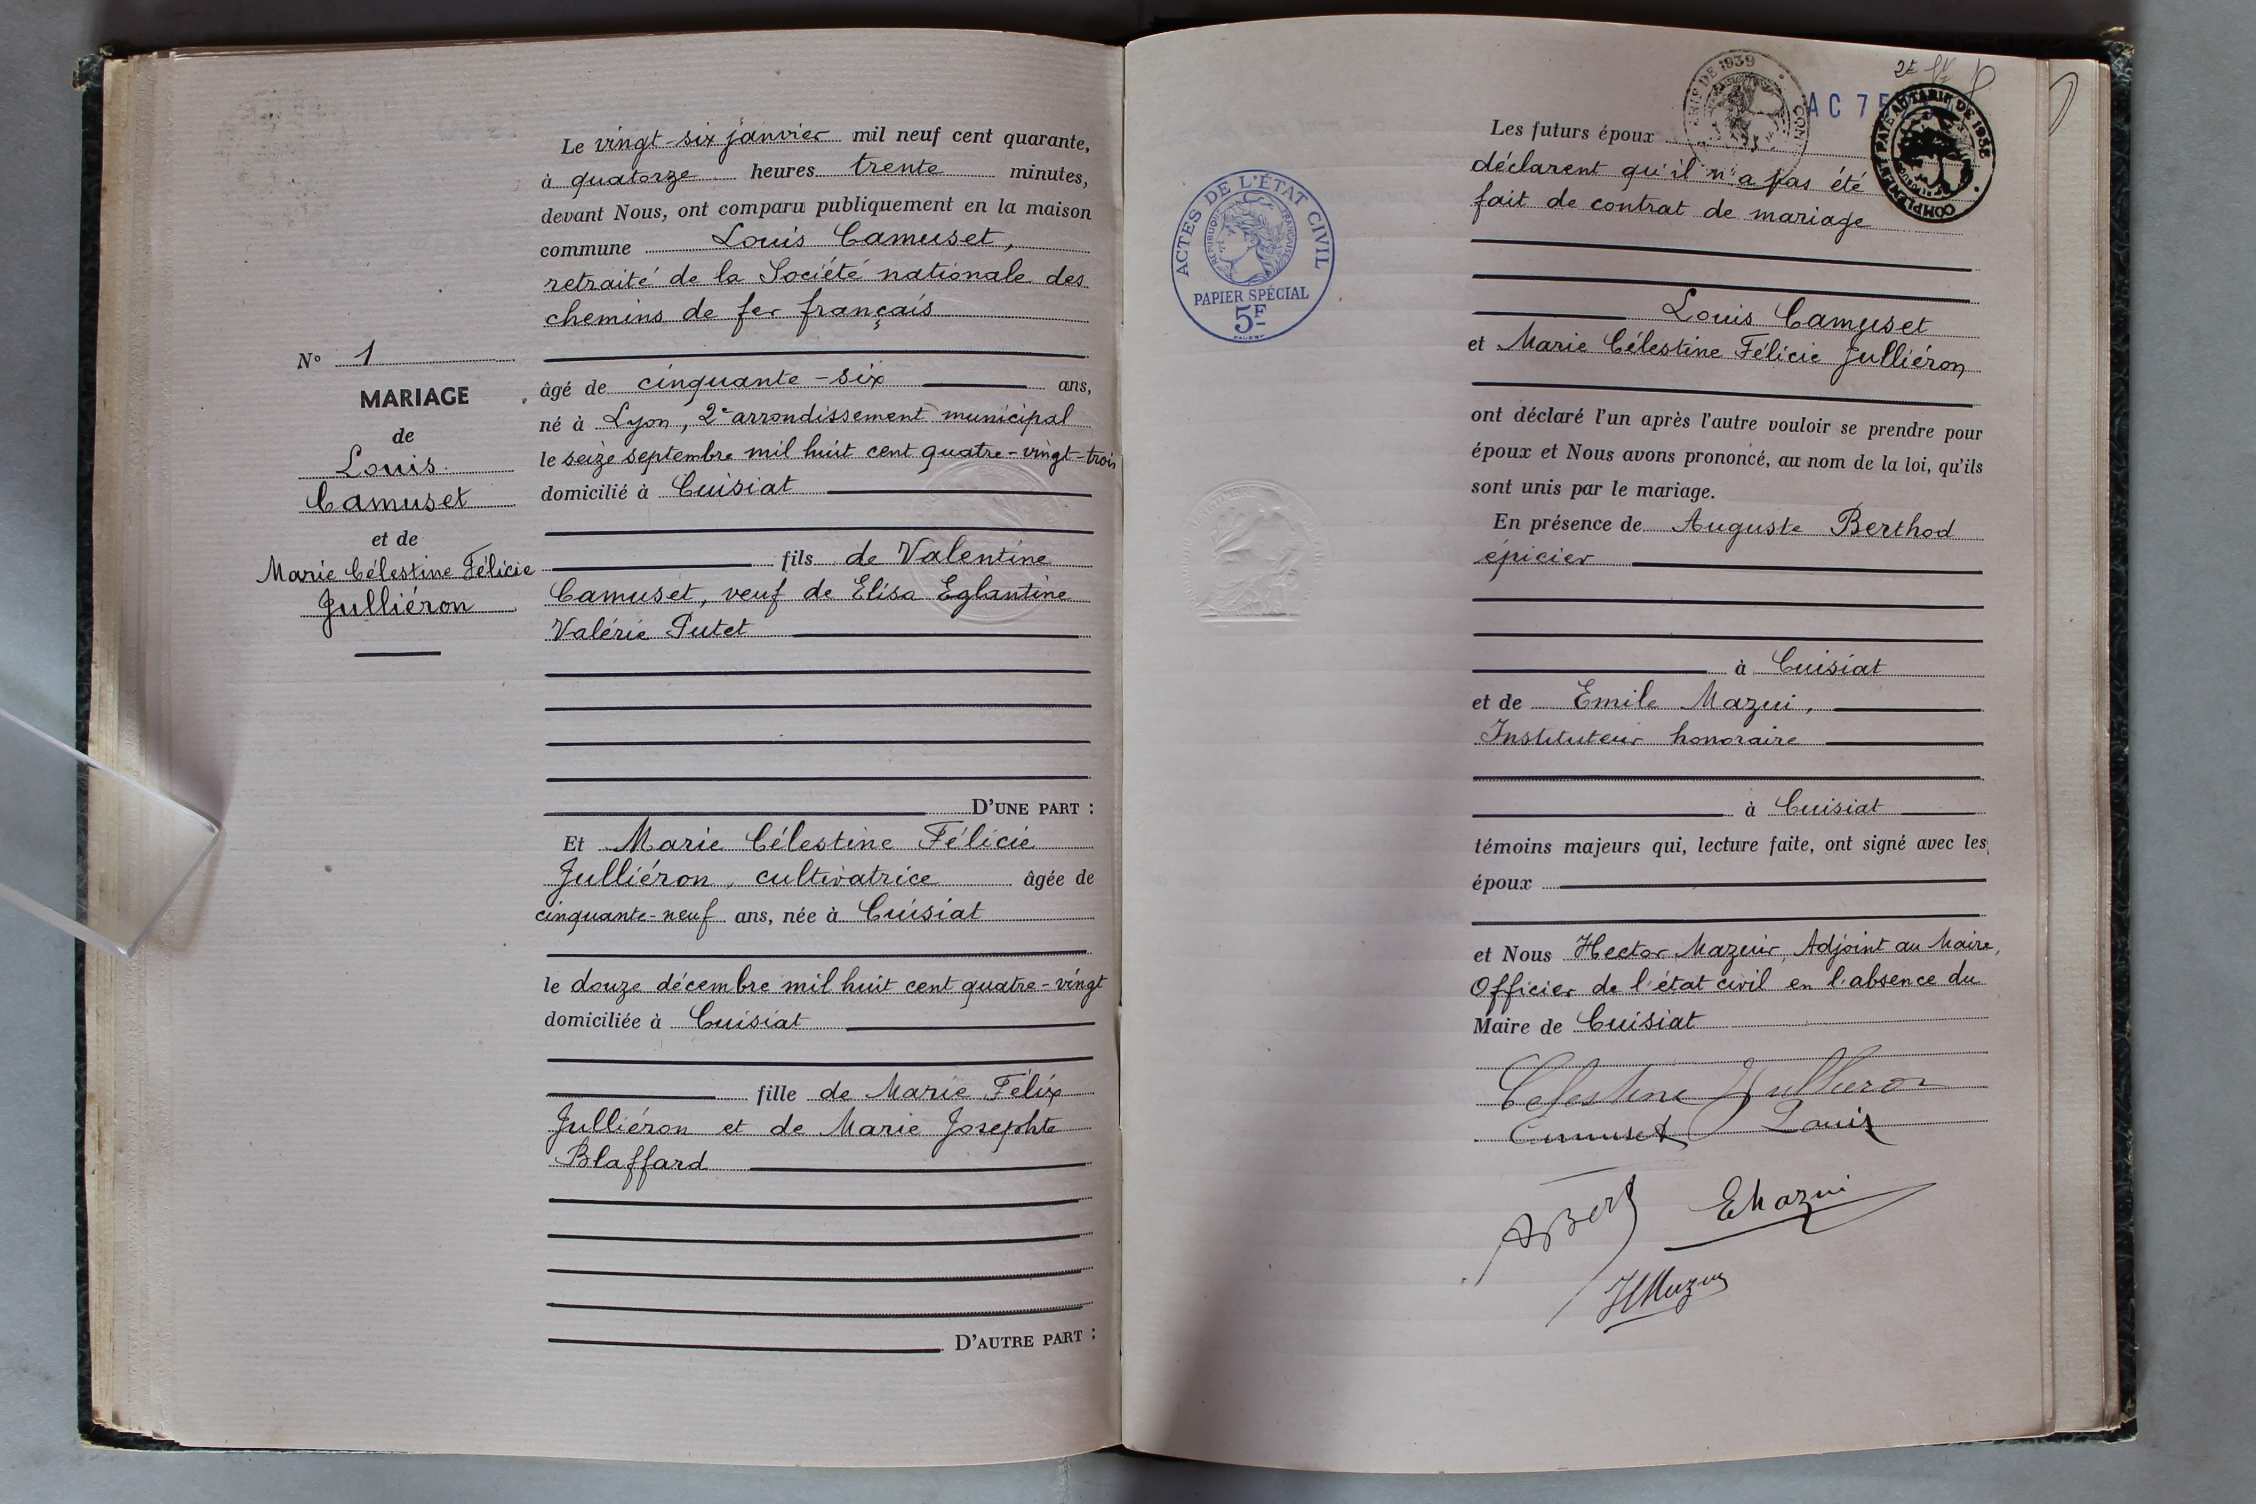 N° 1
MARIAGE
de
Louis
Camuset
et de
Marie Célestine Félicie
Julliéron
Le vingt-six janvier mil neuf cent quarante,
à quatorze heures trente minutes,
devant Nous, ont comparu publiquement en la maison
commune Louis Camuset,
retraité de la Société nationale des
chemins de fer français
âgé de cinquante-six ans,
né à Lyon, 2e arrondissement municipal
le seize septembre mil huit cent quatre-vingt-trois
domicilié à Cuisiat
fils de Valentine
Camuset, veuf de Elisa Eglantine
Valérie Putet
D'UNE PART :
Et Marie Célestine Félicie
Julliéron, cultivatrice âgée de
cinquante-neuf ans, née à Cuisiat
le douze décembre mil huit cent quatre-vingt
domiciliée à Cuisiat
fille de Marie Félix
Julliéron et de Marie Josephte
Blaffard
D'AUTRE PART :
ACTES DE L'ÉTAT CIVIL
RÉPUBLIQUE FRANÇAISE
PAPIER SPÉCIAL
5F
DE 1939
AC 75
COMPLEMENT PAYÉ AU TARIF DE 1938
Les futurs époux
déclarent qu'il n'a pas été
fait de contrat de mariage
Louis Camuset
et Marie Célestine Félicie Julliéron
ont déclaré l'un après l'autre vouloir se prendre pour
époux et Nous avons prononcé, au nom de la loi, qu'ils
sont unis par le mariage.
En présence de Auguste Berthod
épicier
à Cuisiat
et de Emile Mazui,
Instituteur honoraire
à Cuisiat
témoins majeurs qui, lecture faite, ont signé avec les
époux
et Nous Hector Mazuir, Adjoint au Maire,
Officier de l'état civil en l'absence du
Maire de Cuisiat
Celestine Jullieron
Camuset Louis
ABert
EMazui
HMazui